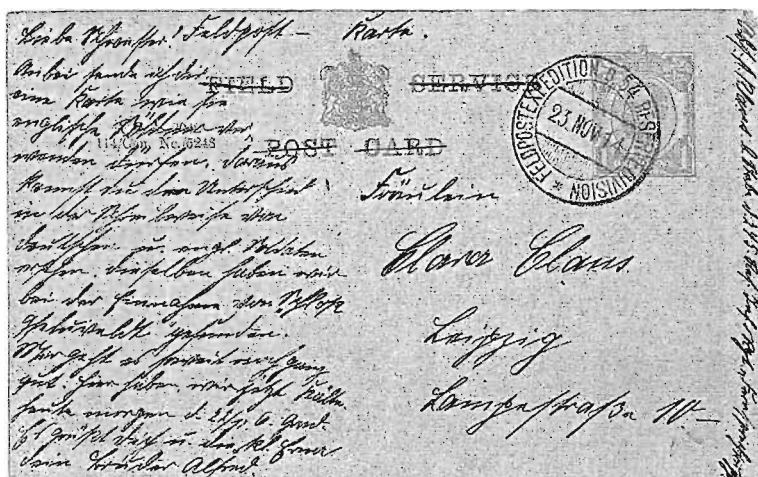 Liebe Schwester! Feldpost – Karte.
Anbei sende ich dir
eine Karte wie sie
englische Soldaten ver-
wenden dürfen. Daraus
kannst du den Unterschied
in der Schreibweise von
deutschen u. engl. Soldaten
ersehen. Dieselben haben wir
bei der Einnahme von Schloß
Gheluveldt gefunden.
Mir geht es soweit noch ganz
gut. Hier haben wir jetzt Kälte
heute morgen d. 6. Grad.
Es grüßt dich u. die kl. Erna
dein Bruder Alfred.
FIELD SERVICE
POST CARD
114/Gen. No./5248
FELDPOSTEXPEDITION D. 54. RESERVEDIVISION
23. NOV. 14
Fräulein
Clara Claus
Leipzig
Lampestraße 10